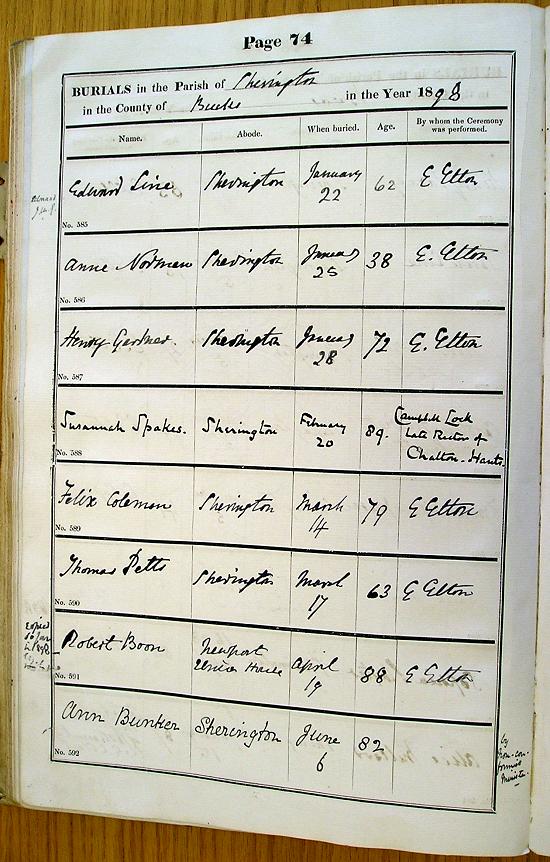 Page 74
BURIALS in the Parish of Sherington
in the County of Bucks in the Year 1898
Name. Abode. When buried. Age. By whom the Ceremony was performed.
Edward Line Sherington January 22 62 E Elton
No. 585
Anne Norman Sherington January 25 38 E. Elton
No. 586
Henry Gardner. Sherington January 28 72 E. Elton
No. 587
Susannah Spakes. Sherington February 20 89. Campbell Lock
late Rector of
Chalton. Hants.
No. 588
Felix Coleman Sherington March 14 79 E Elton
No. 589
Thomas Petts Sherington March 17 63 E Elton
No. 590
Robert Boon Newport
Union House April 19 88 E Elton
No. 591
Ann Bunker Sherington June 6 82
No. 592
Copied
to June
1898
by
Non-con-
formist
Minister.